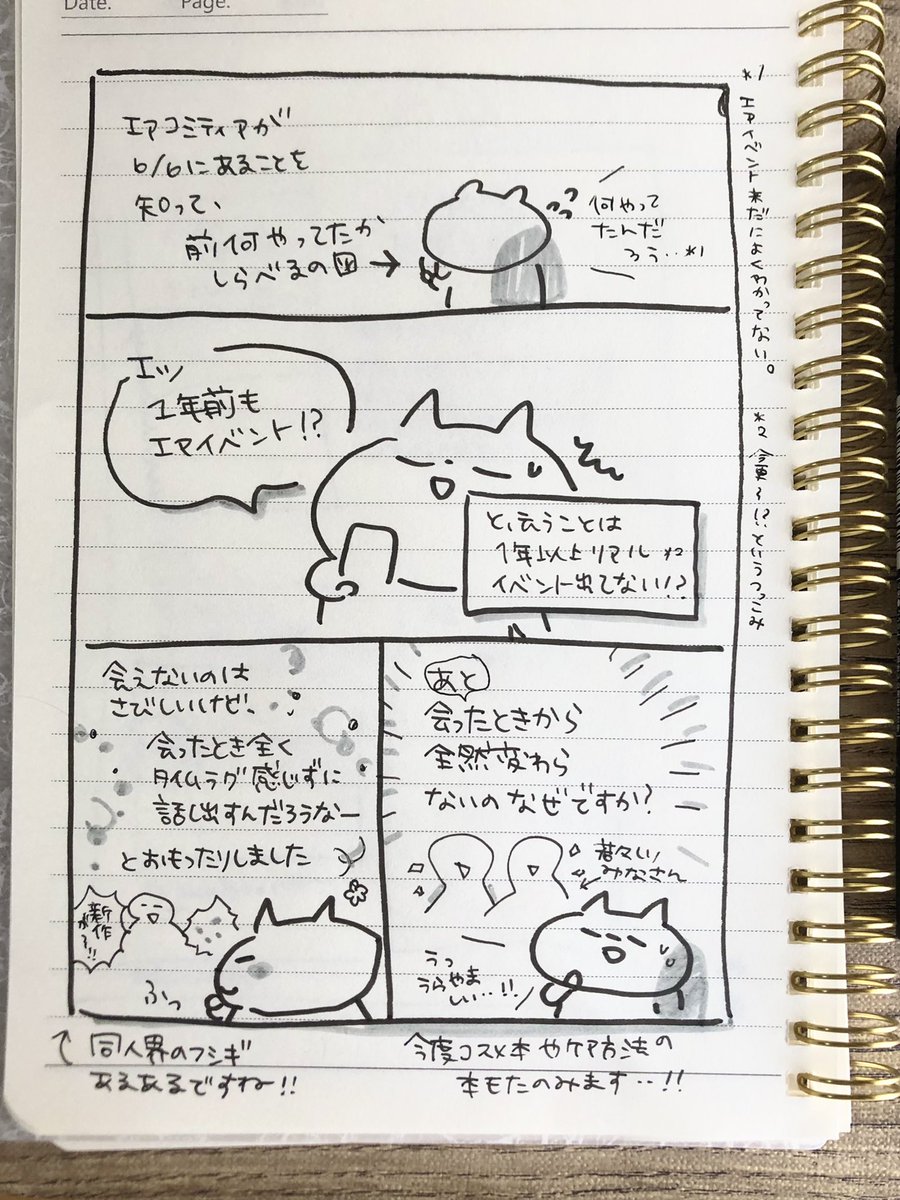 Date.
Page.
エアコミティアが
6/6にあることを
知って、
前何やってたか
しらべるの図→
何やって
たんだ
ろう‥*1
*1 エアイベント未だによくわかってない。
エッ
1年前も
エアイベント!?
と、云うことは
1年以上リアル*2
イベント出てない!?
*2 今更〜!?というつっこみ
あと
会ったときから
全然変わら
ないのなぜですか?
若々しい
みなさん
うっ
うらやま
しい‥!!
会えないのは
さびしいけど、
会ったとき全く
タイムラグ感じずに
話し出すんだろうなー
とおもったりしました
新作
が〜!!
ふっ
今度コスメ本やケア方法の
本もたのみます‥!!
↑同人界のフシギ
あるあるですね!!